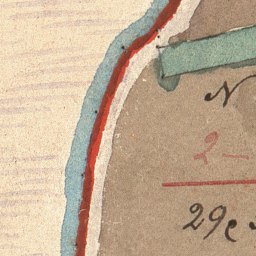 N
2
29e